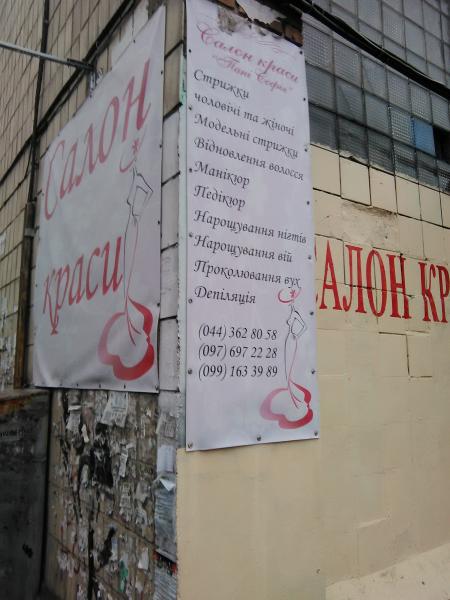 Салон
краси
Салон краси
"Пані Софія"
Стрижки
чоловічі та жіночі
Модельні стрижки
Відновлення волосся
Манікюр
Педікюр
Нарощування нігтів
Нарощування вій
Проколювання вух
Депіляція
(044) 362 80 58
(097) 697 22 28
(099) 163 39 89
САЛОН КР